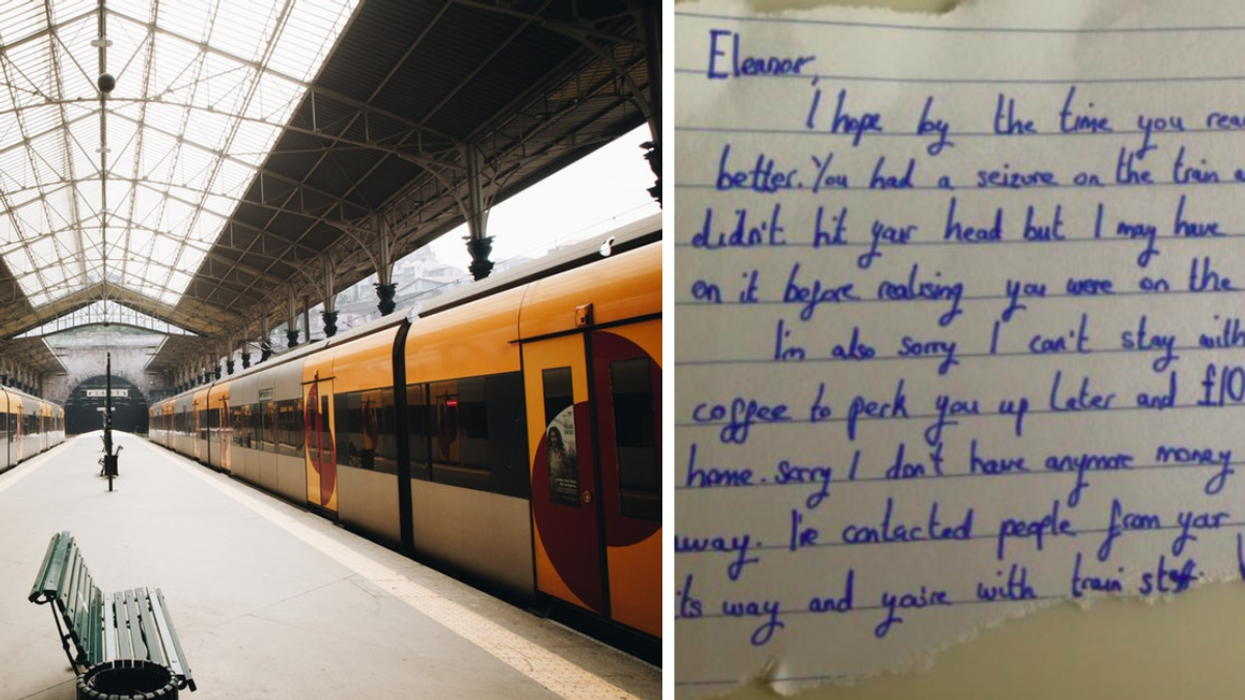 Eleanor,
I hope by the time you rea
better. You had a seizure on the train a
didn't hit your head but I may have
on it before realising you were on the
I'm also sorry I can't stay with
coffee to perk you up later and £10
home. Sorry I don't have anymore money
way. I've contacted people from your
ts way and you're with train staff.